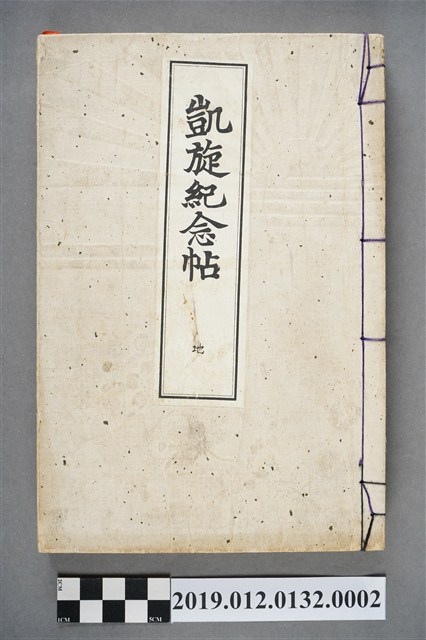 凱旋紀念帖
地
1CM
1CM
5CM
2019.012.0132.0002